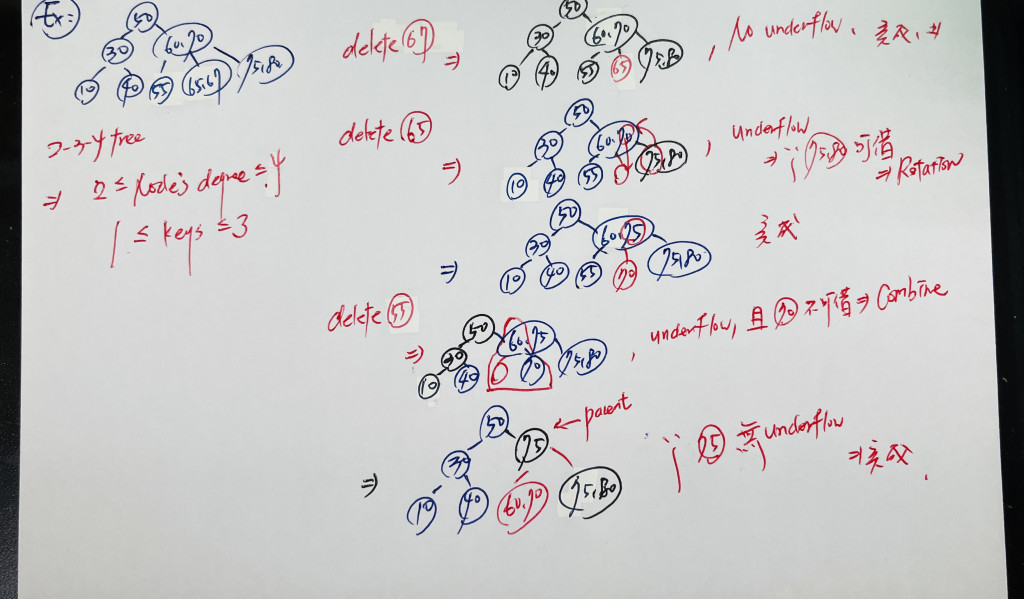 Ex:
50
30
60,70
10
40
55
65,67
75,80
2-3-4 tree
⇒ 2 ≤ Node's degree ≤ 4
1 ≤ keys ≤ 3
delete 67
⇒
50
30
60,70
10
40
55
65
75,80
, No underflow. 完成.
delete 65
⇒
50
30
60,70
10
40
55
75,80
, underflow
⇒ ∵ 75,80 可借
⇒ Rotation
⇒
50
30
60,75
10
40
55
70
75,80
完成
delete 55
⇒
50
30
60,75
10
40
70
75,80
, underflow, 且 70 不可借 ⇒ Combine
⇒
50
← parent
75
30
10
40
60,70
75,80
∵ 75 無 underflow
⇒ 完成.